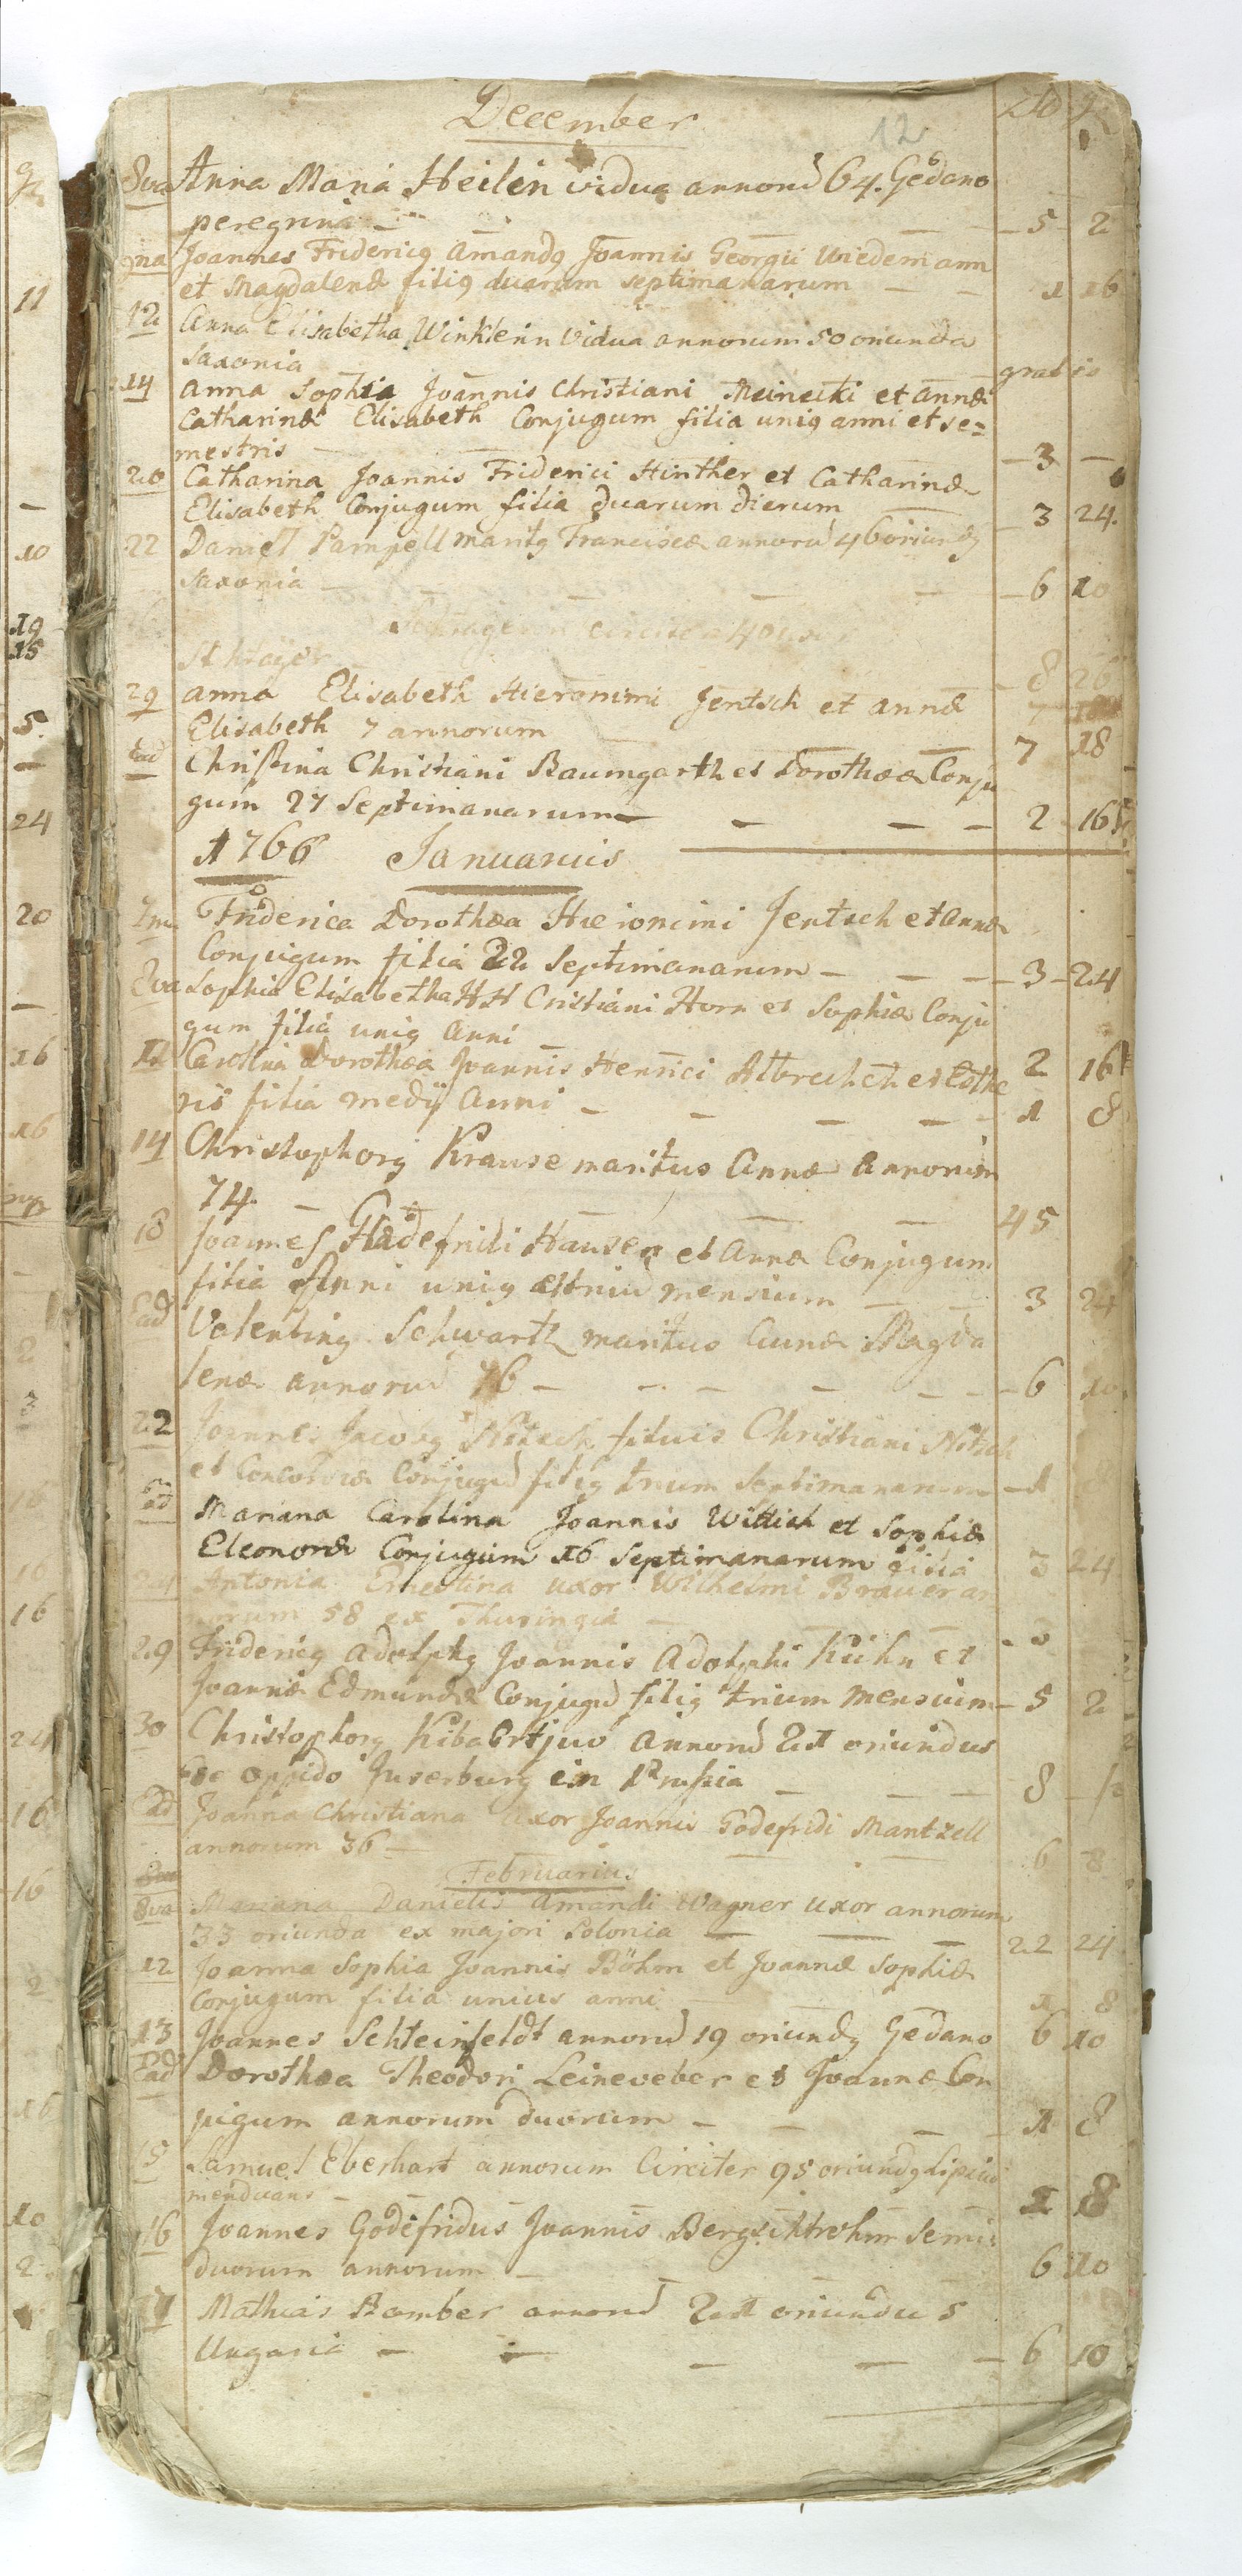 December
12
8va Anna Maria Heilin vidua annorũ 64. Gedano
peregrina — 5 2
9na Joannes Fridericq Amandq Joannis Georgii Wiedemann
et Magdalenæ filiq duarum septimanarum — 1 16
12 Anna Elisabetha Winklerin Vidua annorum 50 oriunda
Saxonia gratis
14 Anna Sophia Joannis Christiani Meinecki et Annæ
Catharinæ Elisabeth Conjugum filia uniq anni et se=
mestris — 3 —
20 Catharina Joannis Friderici Hinther et Catharinæ
Elisabeth Conjugum filia duarum dierum — 3 24.
22 Daniel Pampell maritq Franciscæ annorũ 46 oriundq
Saxonia — 6 10
circiter 40
8 26
29 Anna Elisabeth Hieronimi Jentsch et Annæ
Elisabeth 7 annorum 7 18
Ead Christina Christiani Baumgarth et Dorothææ Conju
gum 27 Septimanarum — 2 16
1766 Januarius
Friderica Dorothæa Hieronimi Jentsch et Annæ
Conjugum filia 22 Septimanarum — 3 24
Sophia Elisabetha Cristiani Horn et Sophiæ Conju
gum filia uniq Anni 2 16
12 Carolina Dorothæa Joannis Henrici Albrechch et Esthe
ris filia medij Anni — 1 8
14 Christophorq Krause maritus Annæ Annorum
74. — 45
18 Joannes Godefridi Hausen et Annæ Conjugum
filia Anni uniq et triũ mensium — 3 24
Ead Valentinq Schwartz maritus Annæ Magda
lenæ annorũ 76 — 6 10
22 Joannes Jacobq Nitsch filius Christiani Nitsch
et Concordiæ Conjugũ filiq trium Septimanarum — 1
Ead Mariana Carolina Joannis Wittich et Sophiæ
Eleonoræ Conjugum 16 Septimanarum filia 3 24
Antonia Ernestina uxor Wilhelmi Brauer an
norum 58 ex Thuringia
29 Fridericq Adolphq Joannis Adolphi Kühn et
Joannæ Edmundæ Conjugũ filiq trium Mensium — 5 2
30 Christophorq Kibabrt juv annorũ 21 oriundus
de oppido Inserburg ein Prussia — 8
Ead Joanna Christiana Uxor Joannis Godefridi Mantzell
annorum 36 — 6 8
Februarius
8va Mariana Danielis Amandi Wagner uxor annorum
33 oriunda ex majori Polonia — 22 24
12 Joanna Sophia Joannis Böhm et Joannæ Sophiæ
Conjugum filia unius anni 1 8
13 Joannes Schteinfeldt annorũ 19 oriundq Gedano 6 10
Ead Dorothæa Theodori Leineveber et Joannæ Con
jugum annorum duorum — 1 8
15 Samuel Eberhart annorum Circiter 95 oriundq Lipsia
mendicans — 1 8
16 Joannes Godefridus Joannis Bergschtrohm Semi:
duorum annorum — 6 10
17 Mathias Bomber annorũ 21 oriundus
Ungaria — 6 10